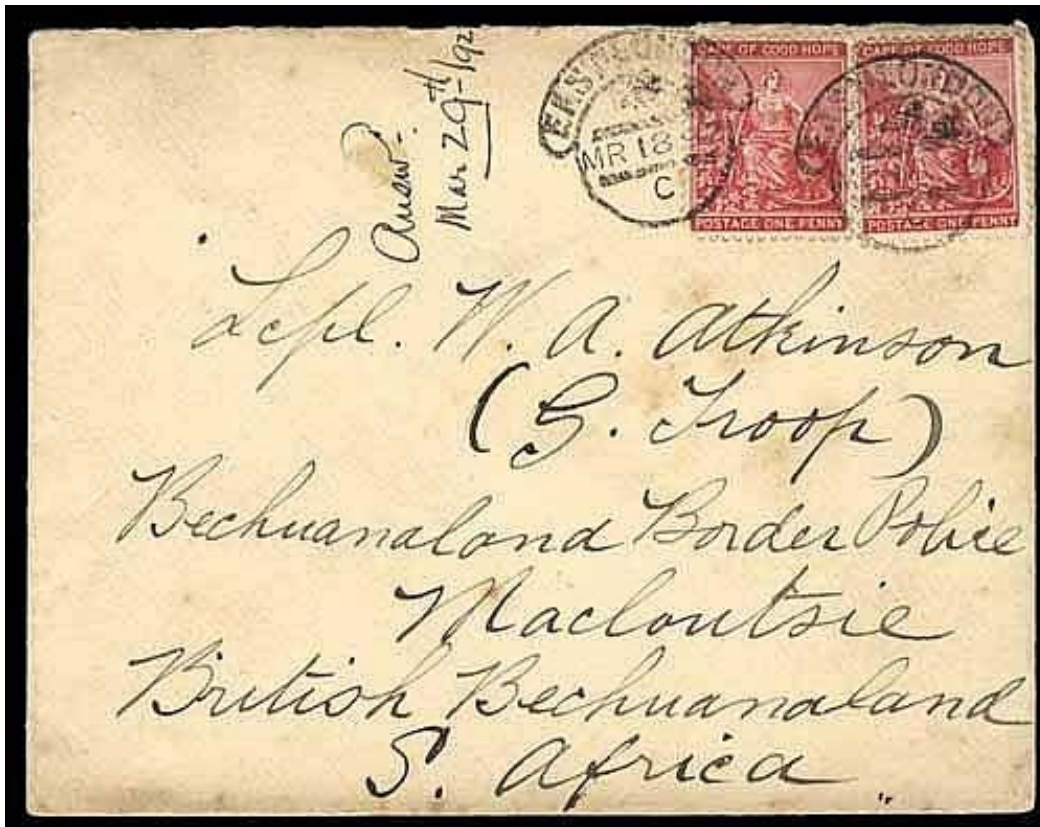 Answ:
Mar 29th/92
EAST LONDON
MR 18
C
CAPE OF GOOD HOPE
POSTAGE ONE PENNY
CAPE OF GOOD HOPE
POSTAGE ONE PENNY
Lcpl. W. A. Atkinson
(G. Troop)
Bechuanaland Border Police
Macloutsie
British Bechuanaland
S. Africa